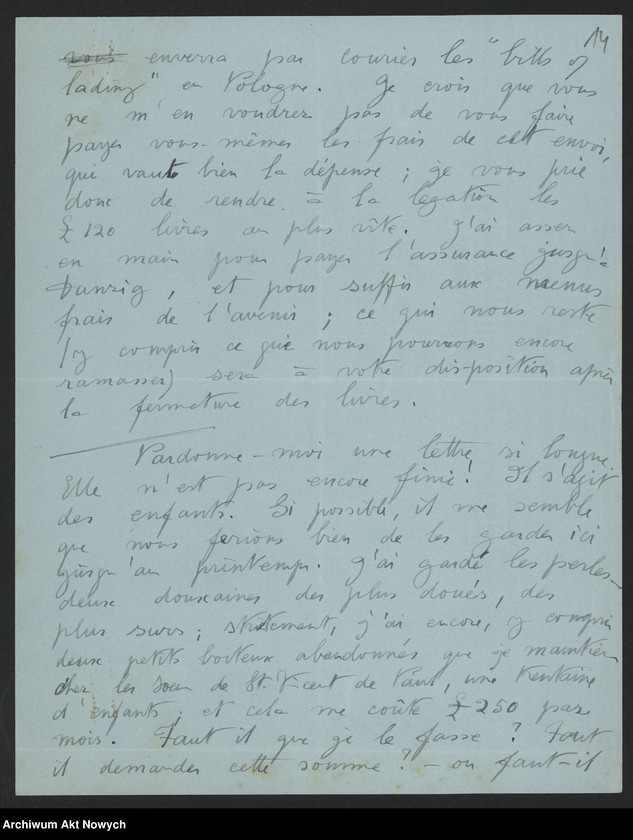 14
vous enverra par courier les "bills of
lading" en Pologne. Je crois que vous
ne m'en voudrez pas de vous faire
payer vous-mêmes les frais de cet envoi,
qui vaut bien la dépense ; je vous prie
donc de rendre à la legation les
£ 120 livres au plus vite. J'ai assez
en main pour payer l'assurance jusqu'à
Danzig, et pour suffir aux menus
frais de l'avenir ; ce qui nous reste
(y compris ce que nous pourrons encore
ramasser) sera à votre disposition après
la fermeture des livres.
Pardonne-moi une lettre si longue.
Elle n'est pas encore finie! Il s'agit
des enfants. Si possible, il me semble
que nous ferions bien de les garder ici
jusqu'au printemps. J'ai gardé les perles -
deux douzaines des plus doués, des
plus surs ; strictement, j'ai encore, y compris
deux petits boiteux abandonnés que je maintien
chez les Soeurs de St. Vicent de Paul, une trentaine
d'enfants ; et cela me coûte £ 250 par
mois. Faut il que je le fasse ? Faut
il demander cette somme ? - ou faut-il
Archiwum Akt Nowych